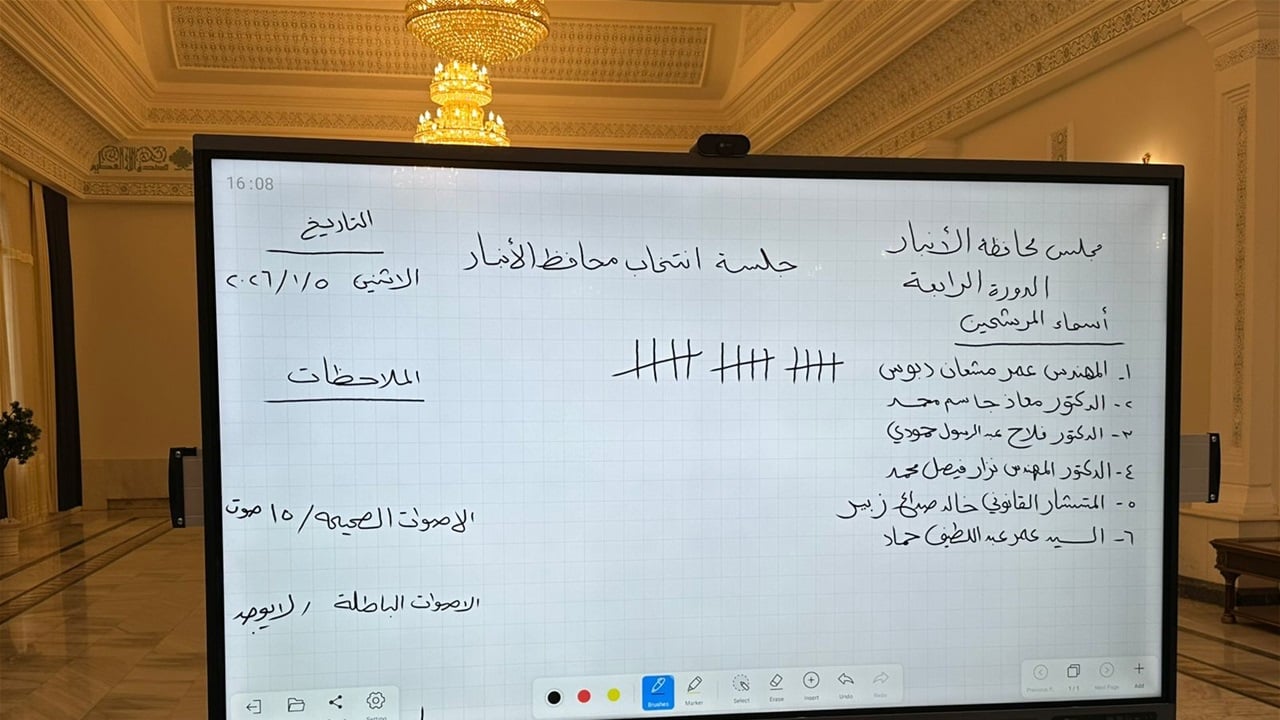 16:08
مجلس محافظة الأنبار
الدورة الرابعة
جلسة انتخاب محافظ الأنبار
التاريخ
الاثنين ٢٠٢٦/١/٥
أسماء المرشحين
١- المهندس عمر مشعان دبوس
٢- الدكتور معاذ جاسم محمد
٣- الدكتور فلاح عبد الرسول حمودي
٤- الدكتور المهندس نزار فيصل محمد
٥- المتشار القانوني خالد صالح زبير
٦- السيد عمر عبد اللطيف حماد
الملاحظات
الاصوات الصحيحة / ١٥ صوت
الاصوات الباطلة / لا يوجد
Setting
Brushes
Marker
Select
Erase
Insert
Undo
Redo
1/1
Next Page
Add